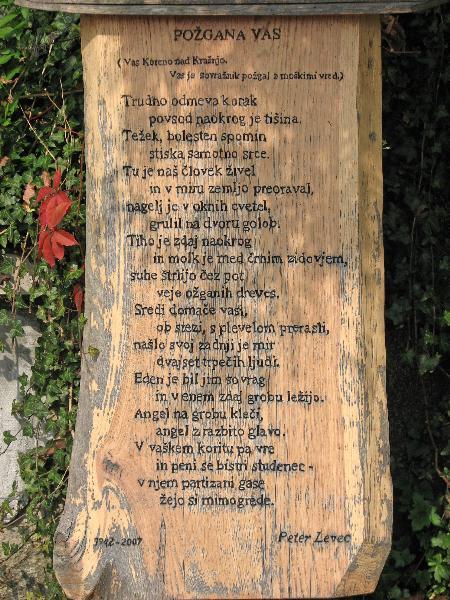 POŽGANA VAS
(Vas Koreno nad Krašnjo.
Vas je sovražnik požgal z moškimi vred.)
Trudno odmeva korak
povsod naokrog je tišina.
Težek, bolesten spomin
stiska samotno srce.
Tu je naš človek živel
in v miru zemljo preoraval,
nagelj je v oknih cvetel,
grulil na dvoru golob.
Tiho je zdaj naokrog
in molk je med črnim zidovjem,
suhe štrlijo čez pot
veje ožganih dreves.
Sredi domače vasi,
ob stezi, s plevelom prerasli,
našlo svoj zadnji je mir
dvajset trpečih ljudi.
Eden je bil jim sovrag
in v enem zdaj grobu ležijo.
Angel na grobu kleči,
angel z razbito glavo.
V vaškem koritu pa vre
in peni se bistri studenec -
v njem partizani gase
žejo si mimogrede.
1942-2007
Peter Levec